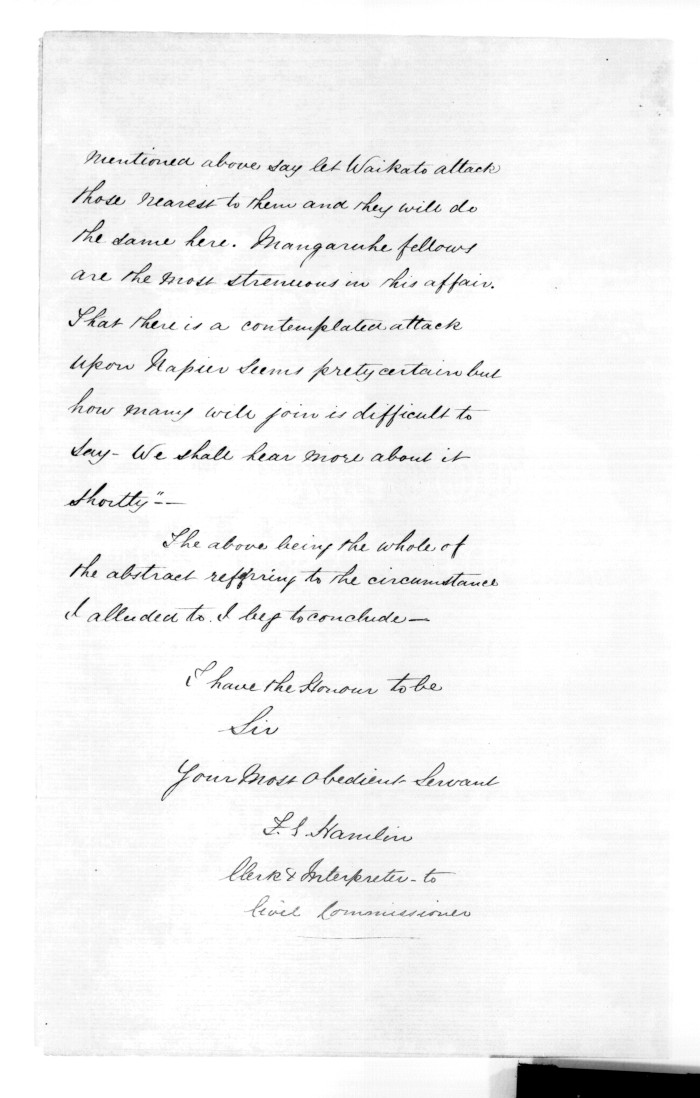 mentioned above say let Waikato attack
those nearest to them and they will do
the same here. Mangaruhe fellows
are the most strenuous in this affair.
That there is a contemplated attack
upon Napier seems prety certain but
how many will join is difficult to
say - We shall hear more about it
shortly" —
The above being the whole of
the abstract referring to the circumstance
I alluded to. I beg to conclude —
I have the Honour to be
Sir
Your Most Obedient Servant
F. E. Hamlin
Clerk & Interpreter - to
Civil Commissioner